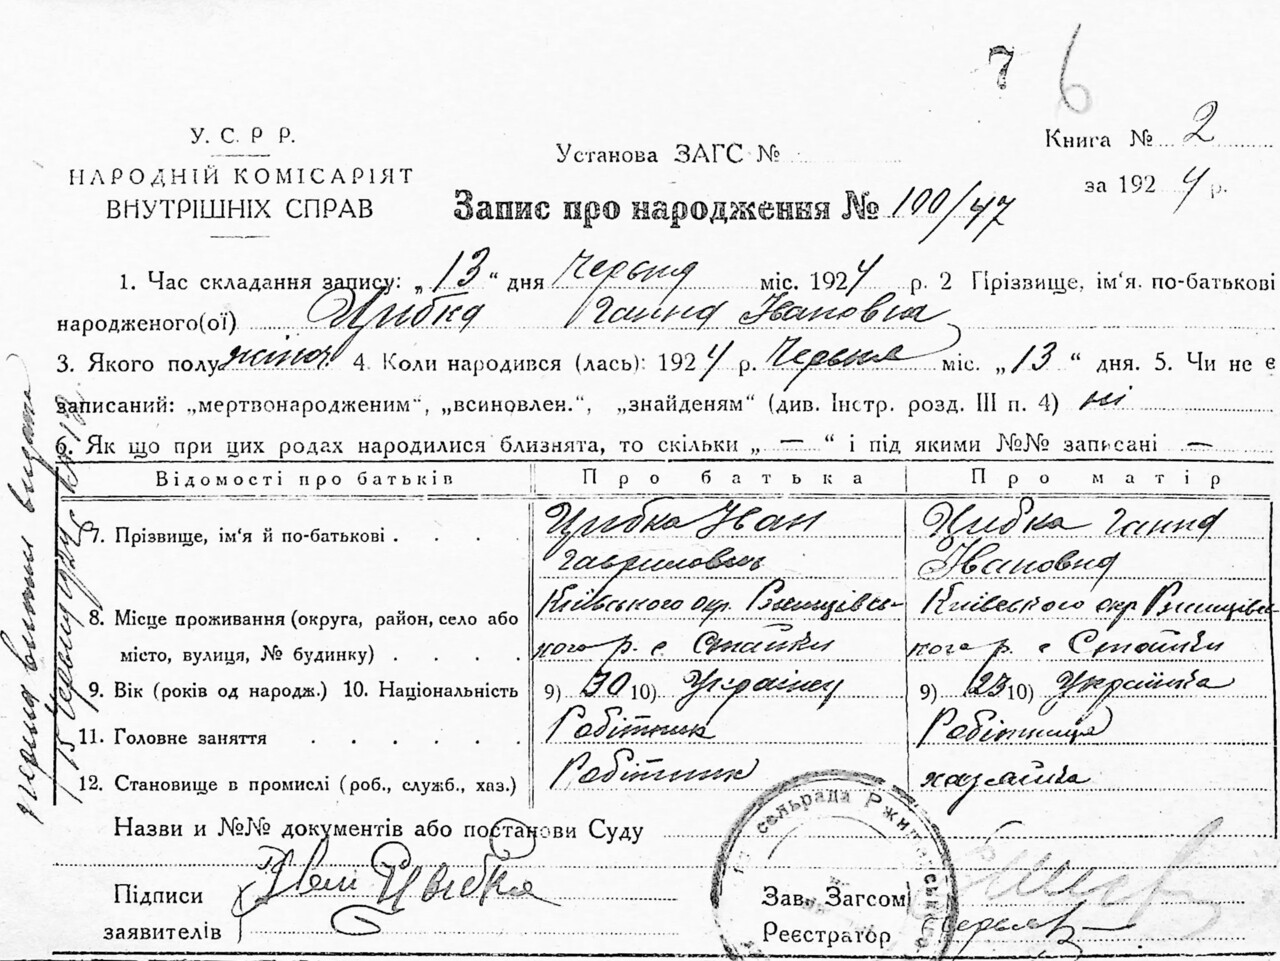 7 6
У. С. Р Р.
НАРОДНІЙ КОМІСАРІЯТ
ВНУТРІШНІХ СПРАВ
Установа ЗАГС №
Книга № 2
за 1924 р.
Запис про народження № 100/47
1. Час складання запису: „13“ дня Червня міс. 1924 р. 2 Прізвище, ім'я. по-батькові
народженого(ої) Цибка Ганна Івановна
3. Якого полу жіноч. 4. Коли народився (лась): 1924 р. Червня міс. „13“ дня. 5. Чи не є
записаний: „мертвонародженим“, „всиновлен.“, „знайденям“ (див. Інстр. розд. III п. 4) ні
6. Як що при цих родах народилися близнята, то скільки „ — “ і під якими №№ записані —
Відомості про батьків Про батька Про матір
7. Прізвище, ім'я й по-батькові . . . . Цибка Іван Цибка Ганна
Гаврилович Івановна
8. Місце проживання (округа, район, село або Київського окр. Ржищівсь- Київського окр Ржищівсь-
місто, вулиця, № будинку) . . . . кого р. с Стайки кого р с Стайки
9. Вік (років од народж.) 10. Національність 9) 30 10) Українец 9) 23 10) Українка
11. Головне заняття . . . . . Робітник Робітниця
12. Становище в промислі (роб., служб., хаз.) Робітник хазяйка
Назви и №№ документів або постанови Суду
сельрада Ржищівського
Підписи
заявителів Іван Цыбка
Зав. Загсом
Реєстратор